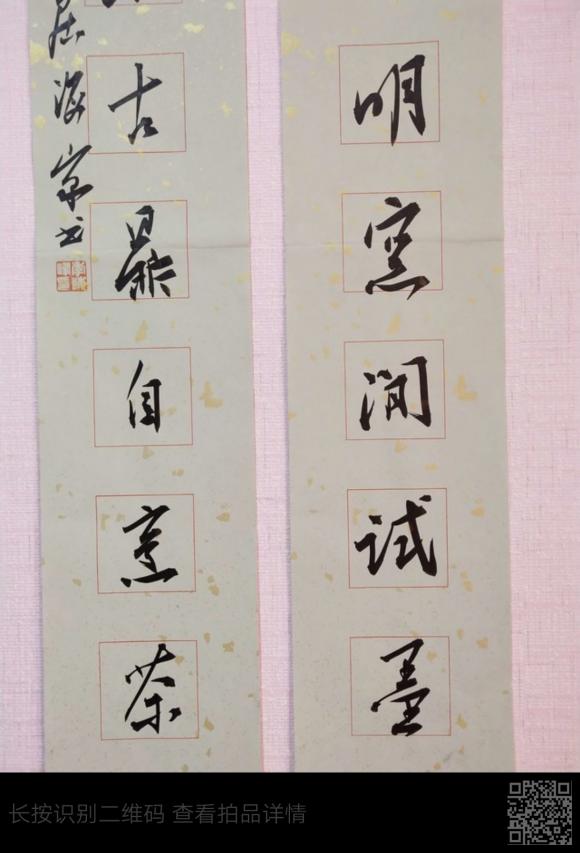 明窗閒試墨
古鼎自烹茶
长按识别二维码 查看拍品详情